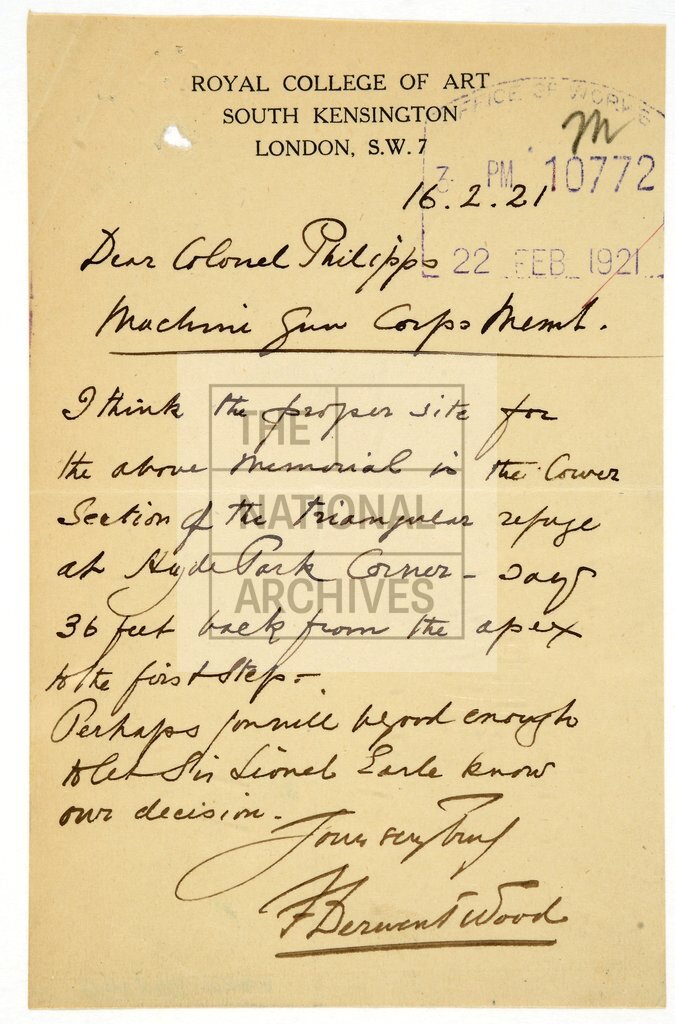 ROYAL COLLEGE OF ART
SOUTH KENSINGTON
LONDON, S.W. 7
OFFICE OF WORKS
M
3 PM 10772
22 FEB 1921
16.2.21
Dear Colonel Philipps
Machine Gun Corps Memt.
I think the proper site for
the above Memorial is the Lower
Section of the triangular refuge
at Hyde Park Corner - say
36 feet back from the apex
to the first step -
Perhaps you will be good enough
to let Sir Lionel Earle know
our decision.
Yours very truly
F Derwent Wood
THE
NATIONAL
ARCHIVES